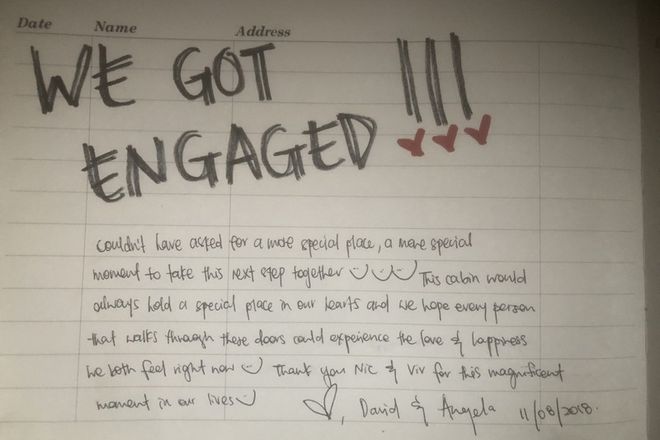 Date Name Address
WE GOT !!!
ENGAGED
couldn't have asked for a more special place, a more special
moment to take this next step together This cabin would
always hold a special place in our hearts and we hope every person
that walks through these doors could experience the love & happiness
we both feel right now Thank you Nic & Viv for this magnificent
moment in our lives , David & Angela 11/08/2018.